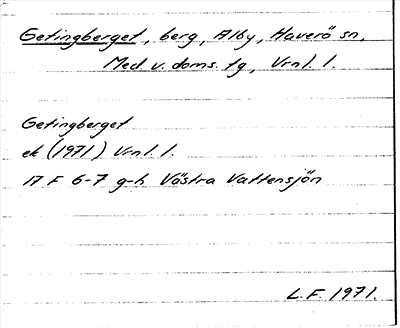 Getingberget, berg, Alby, Haverö sn,
Med. v. doms. tg, Vrnl. l.
Getingberget
ek (1971) Vrnl. l.
17 F 6-7 g-h Västra Vattensjön
L.F. 1971.